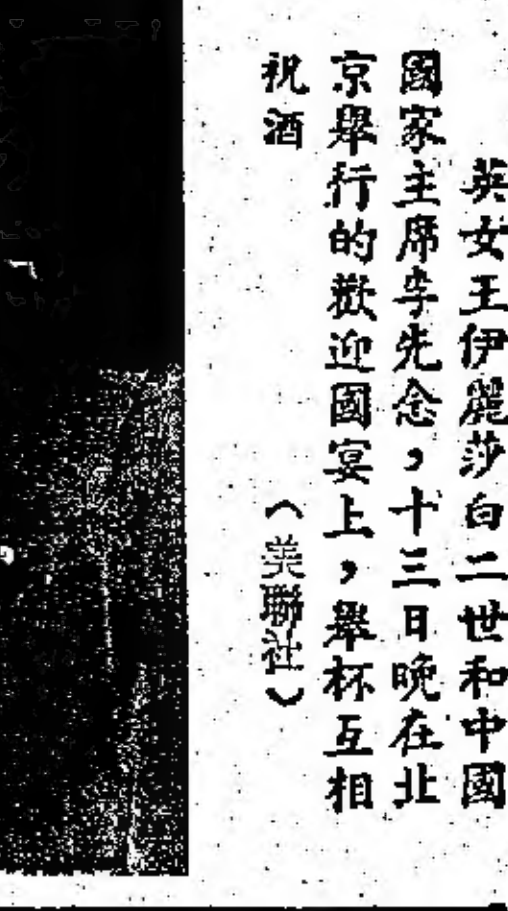 英女王伊麗莎白二世和中國
國家主席李先念，十三日晚在北
京舉行的歡迎國宴上，舉杯互相
祝酒　（美聯社）